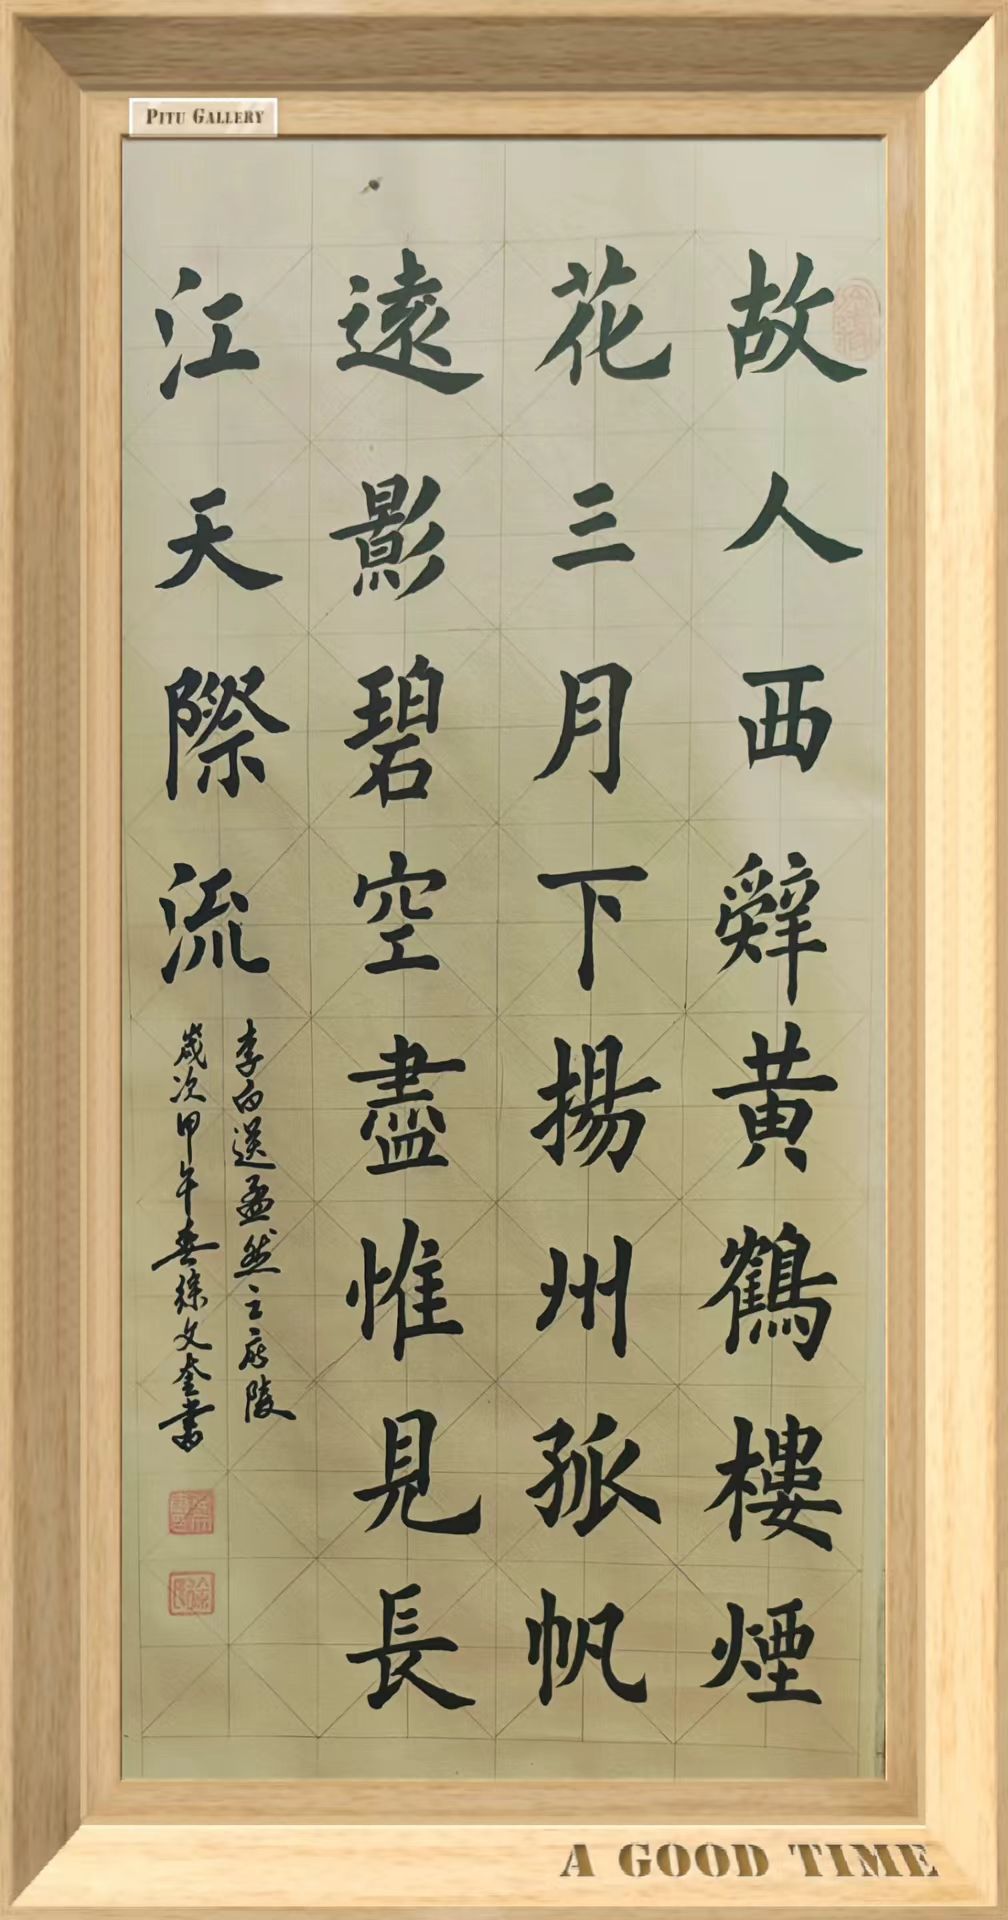 PITU GALLERY
故人西辭黃鶴樓煙
花三月下揚州孤帆
遠影碧空盡惟見長
江天際流
李白送孟然之廣陵
歲次甲午春徐文奎書
A GOOD TIME